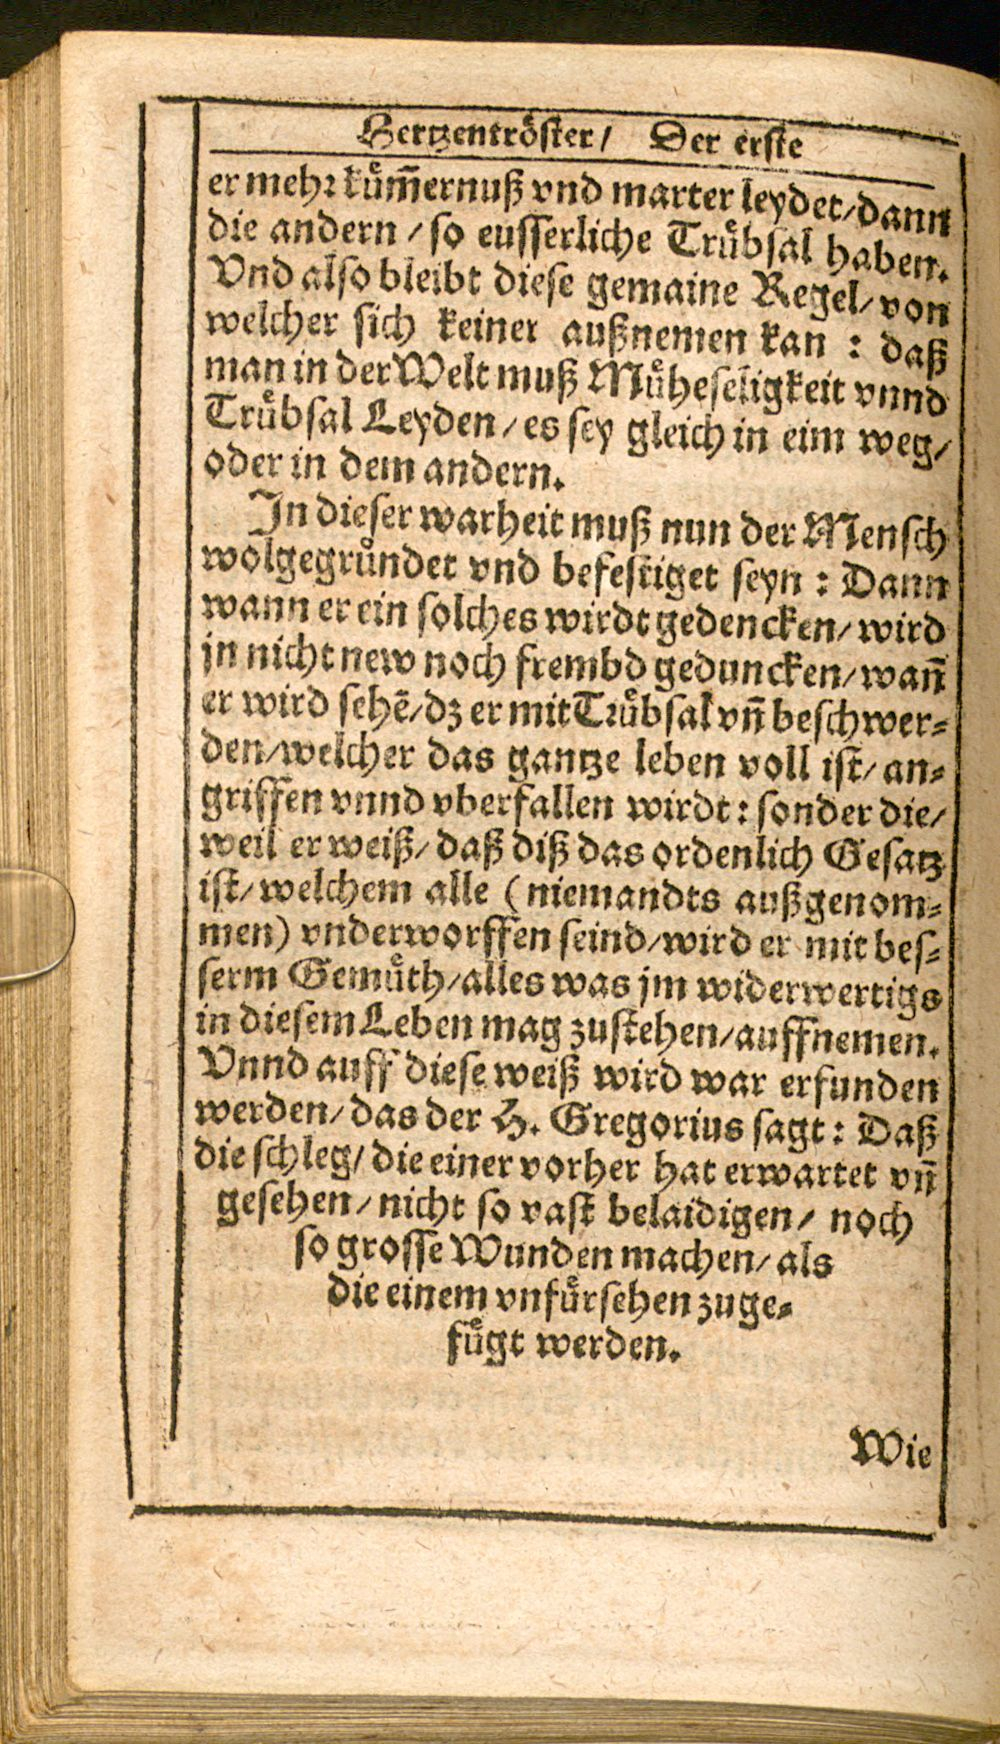 Hertzentröster/ Der erste
er mehr küm̃ernuß vnd marter leydet/dann
die andern/so eusserliche Trübsal haben.
Vnd also bleibt diese gemaine Regel/von
welcher sich keiner außnemen kan : daß
man in der Welt muß Müheseligkeit vnnd
Trübsal Leyden/es sey gleich in eim weg/
oder in dem andern.
In dieser warheit muß nun der Mensch
wolgegründet vnd befestiget seyn : Dann
wann er ein solches wirdt gedencken/wird
jn nicht new noch frembd geduncken/wañ
er wird sehē/dz er mit Trübsal vñ beschwer-
den/welcher das gantze leben voll ist/an-
griffen vnnd vberfallen wirdt: sonder die/
weil er weiß/daß diß das ordenlich Gesatz
ist/welchem alle (niemandts außgenom-
men) vnderworffen seind/wird er mit bes-
serm Gemüth/alles was jm widerwertigs
in diesem Leben mag zustehen/auffnemen.
Vnnd auff diese weiß wird war erfunden
werden/das der H. Gregorius sagt: Daß
die schleg/die einer vorher hat erwartet vñ
gesehen/nicht so vast belaidigen/ noch
so grosse Wunden machen/als
die einem vnfürsehen zuge-
fügt werden.
Wie